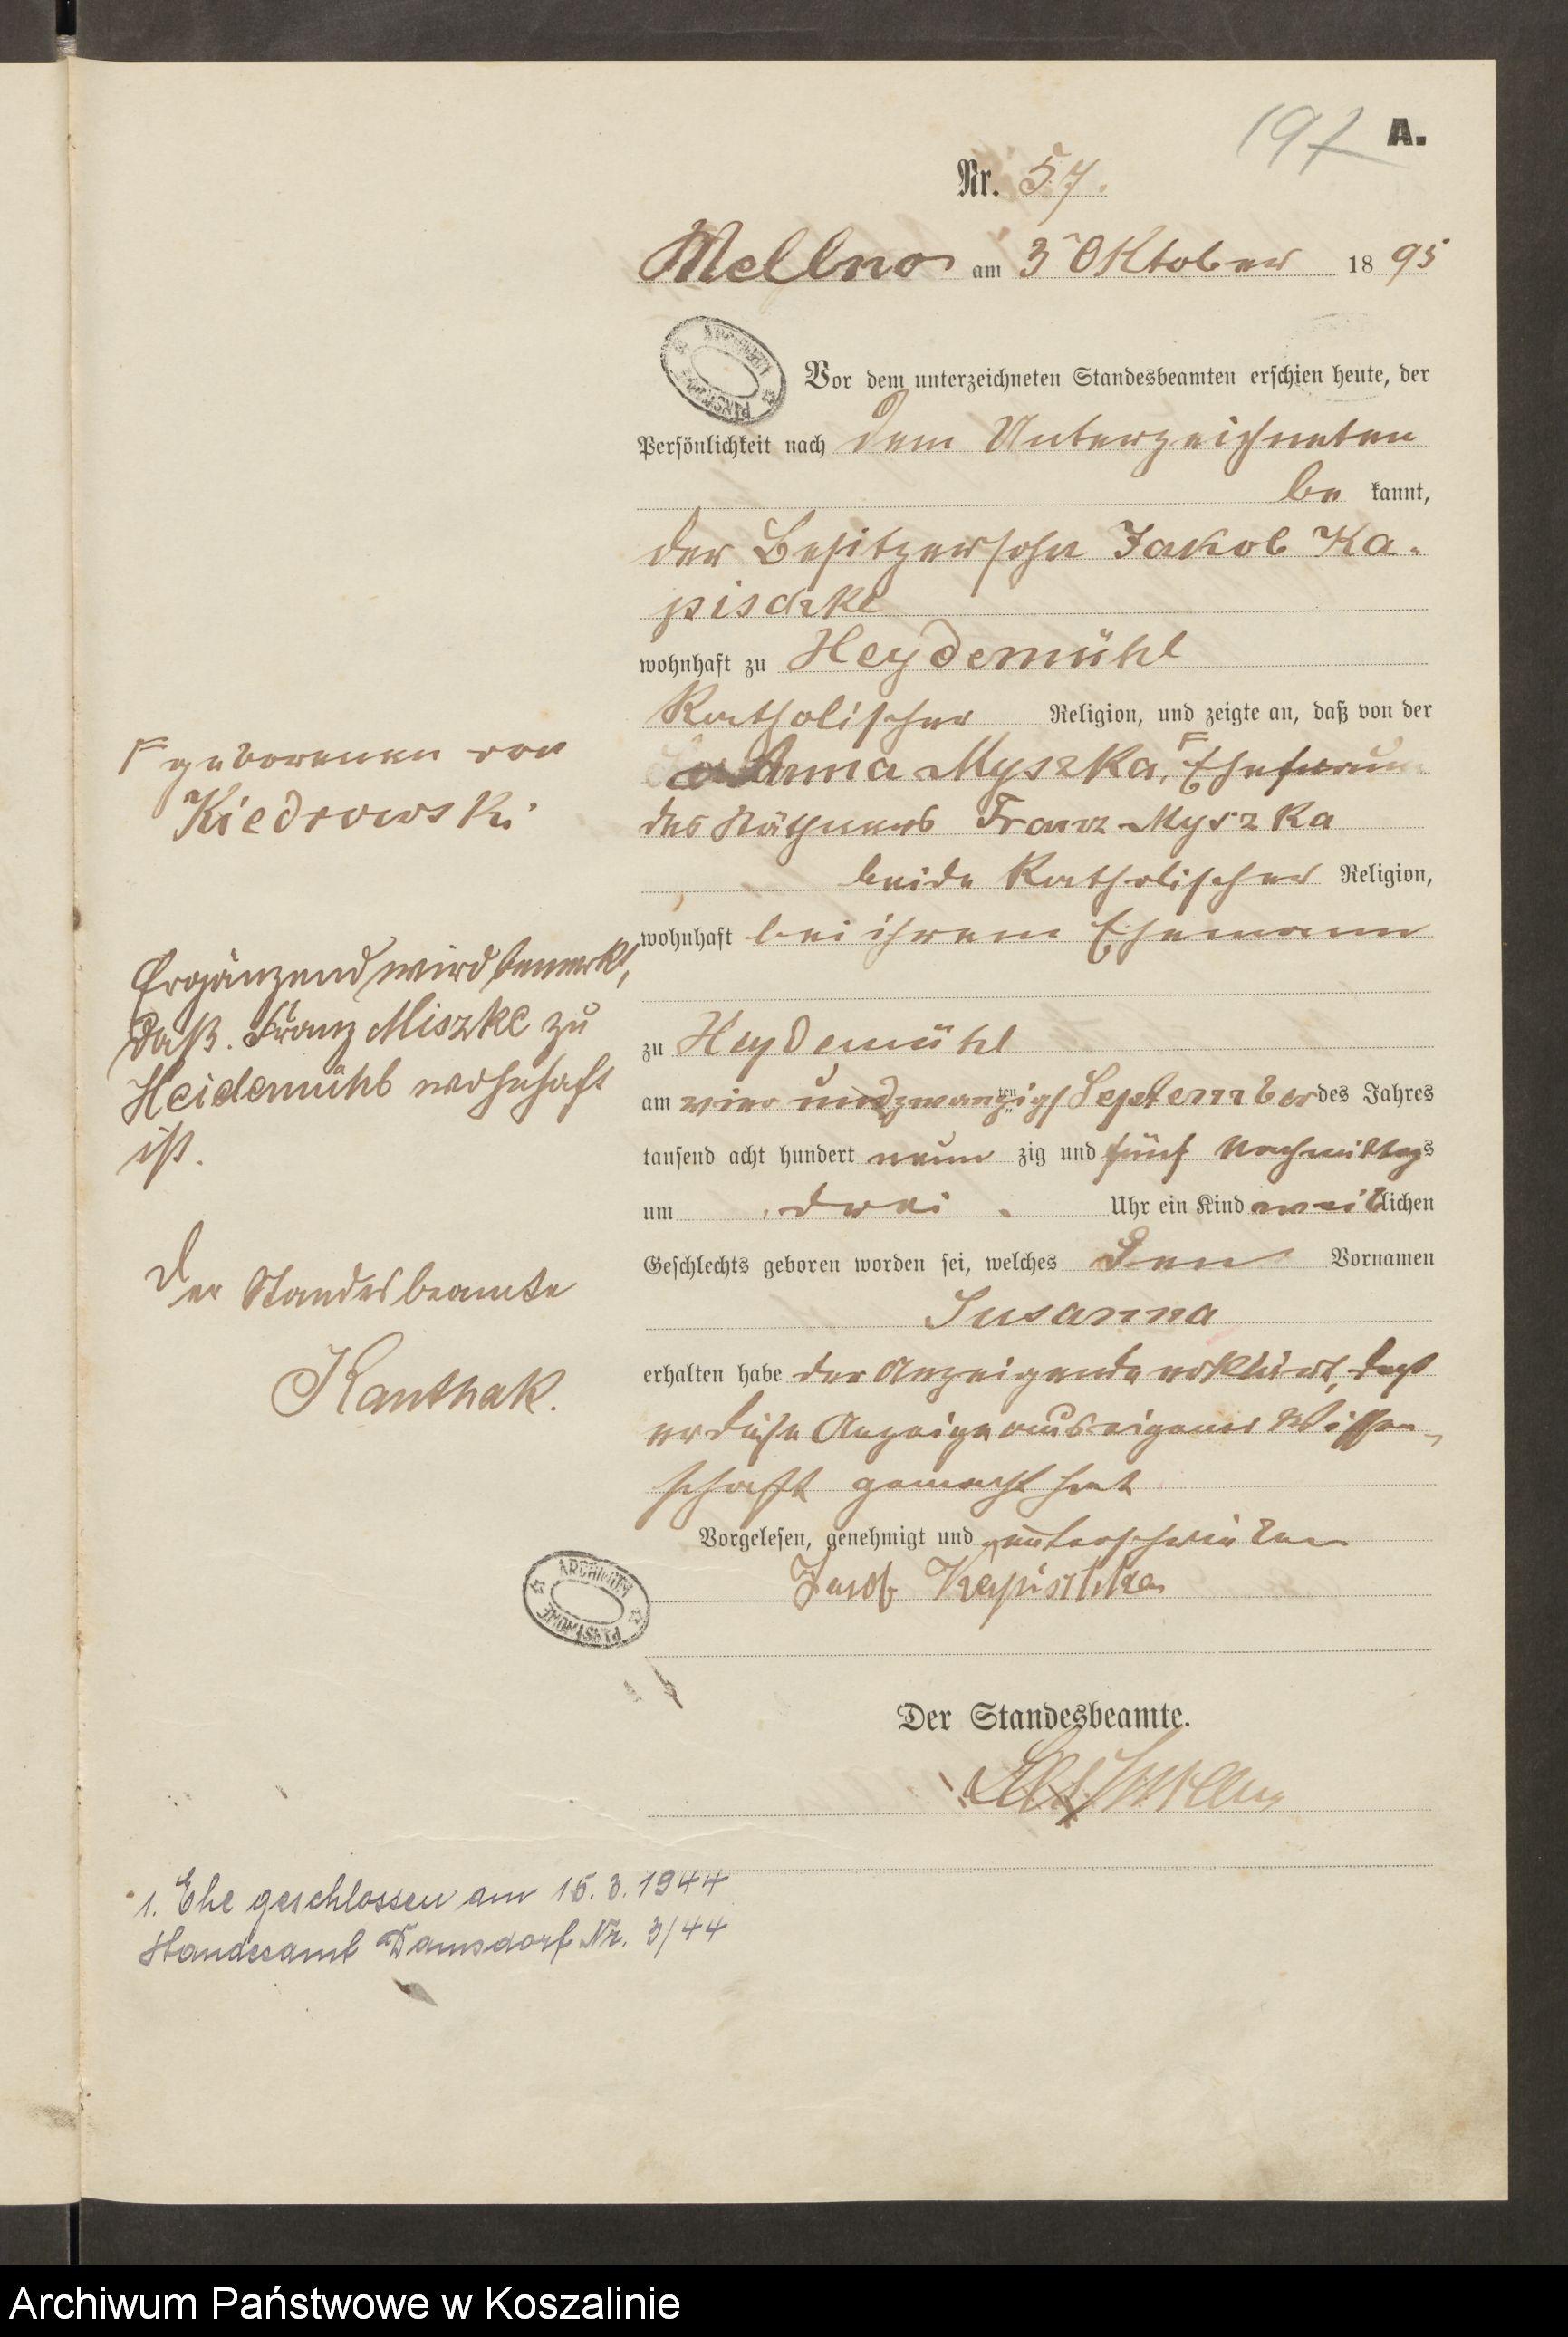 197 A.
Nr. 57.
Mellno am 3 Oktober 1895
ARCHIWUM PAŃSTWOWE
Vor dem unterzeichneten Standesbeamten erschien heute, der
Persönlichkeit nach dem Unterzeichneten
be kannt,
der Besitzersohn Jakob Ka-
pischke
wohnhaft zu Heydemühl
Katholischer Religion, und zeigte an, daß von der
Anna Myszka, Γ Ehefrau
des Käthners Franz Myszka
beide Katholischer Religion,
wohnhaft bei ihrem Ehemann
zu Heydemühl
am vier und zwanzigsten September des Jahres
tausend acht hundert neun zig und fünf Nachmittags
um drei Uhr ein Kind weiblichen
Geschlechts geboren worden sei, welches den Vornamen
Susanna
erhalten habe der Anzeigende erklärt, daß
er diese Anzeige aus eigener Wissen-
schaft gemacht hat
Vorgelesen, genehmigt und unterschrieben
Jacob Kapischke
ARCHIWUM PAŃSTWOWE
Der Standesbeamte.
Γ geborenen von
Kiedrowski
Ergänzend wird bemerkt,
daß Franz Miszke zu
Heidemühl wohnhaft
ist.
Der Standesbeamte
Kanthak.
1. Ehe geschlossen am 15.3.1944
Standesamt Damsdorf Nr. 3/44
Archiwum Państwowe w Koszalinie